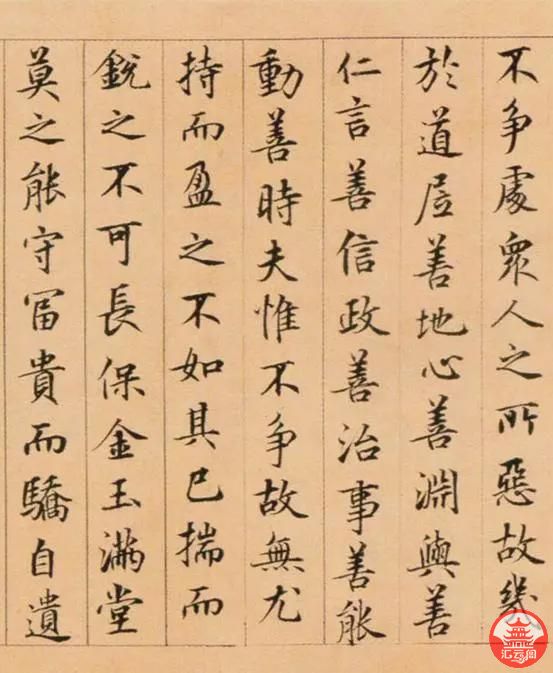 不争處衆人之所惡故幾
於道居善地心善淵與善
仁言善信政善治事善能
動善時夫惟不争故無尤
持而盈之不如其已揣而
銳之不可長保金玉滿堂
莫之能守富貴而驕自遺
汇云阁